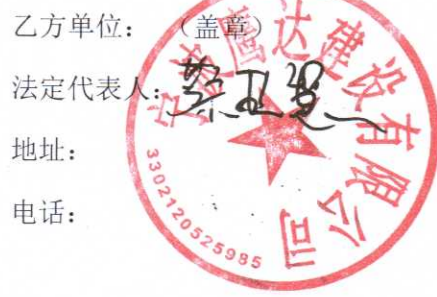 乙方单位：（盖章）
法定代表人：
地址：
电话：
宁波鹰达建设有限公司
3302120525985